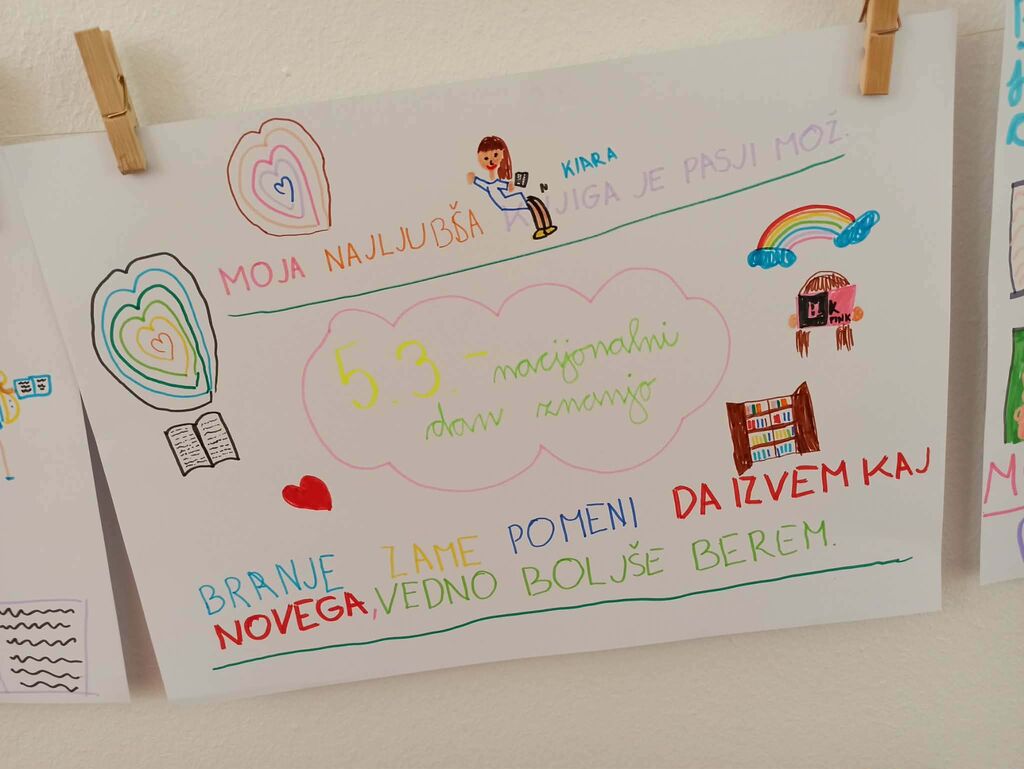 KIARA
MOJA NAJLJUBŠA KNJIGA JE PASJI MOŽ.
5.3. - nacijonalni
dan znanjo
K
PINK
BRANJE ZAME POMENI DA IZVEM KAJ
NOVEGA, VEDNO BOLJŠE BEREM.